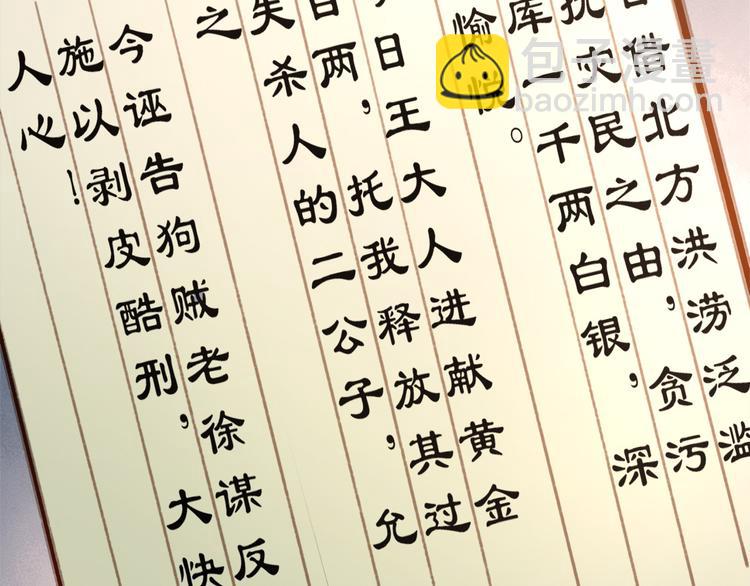 借北方洪涝泛滥
灾民之由，贪污
库一千两白银，深
愉悦。
日王大人进献黄金
两，托我释放其过
失杀人的二公子，允
之
今诬告狗贼老徐谋反
施以剥皮酷刑，大快
人心！
包子漫畫
baozimh.com